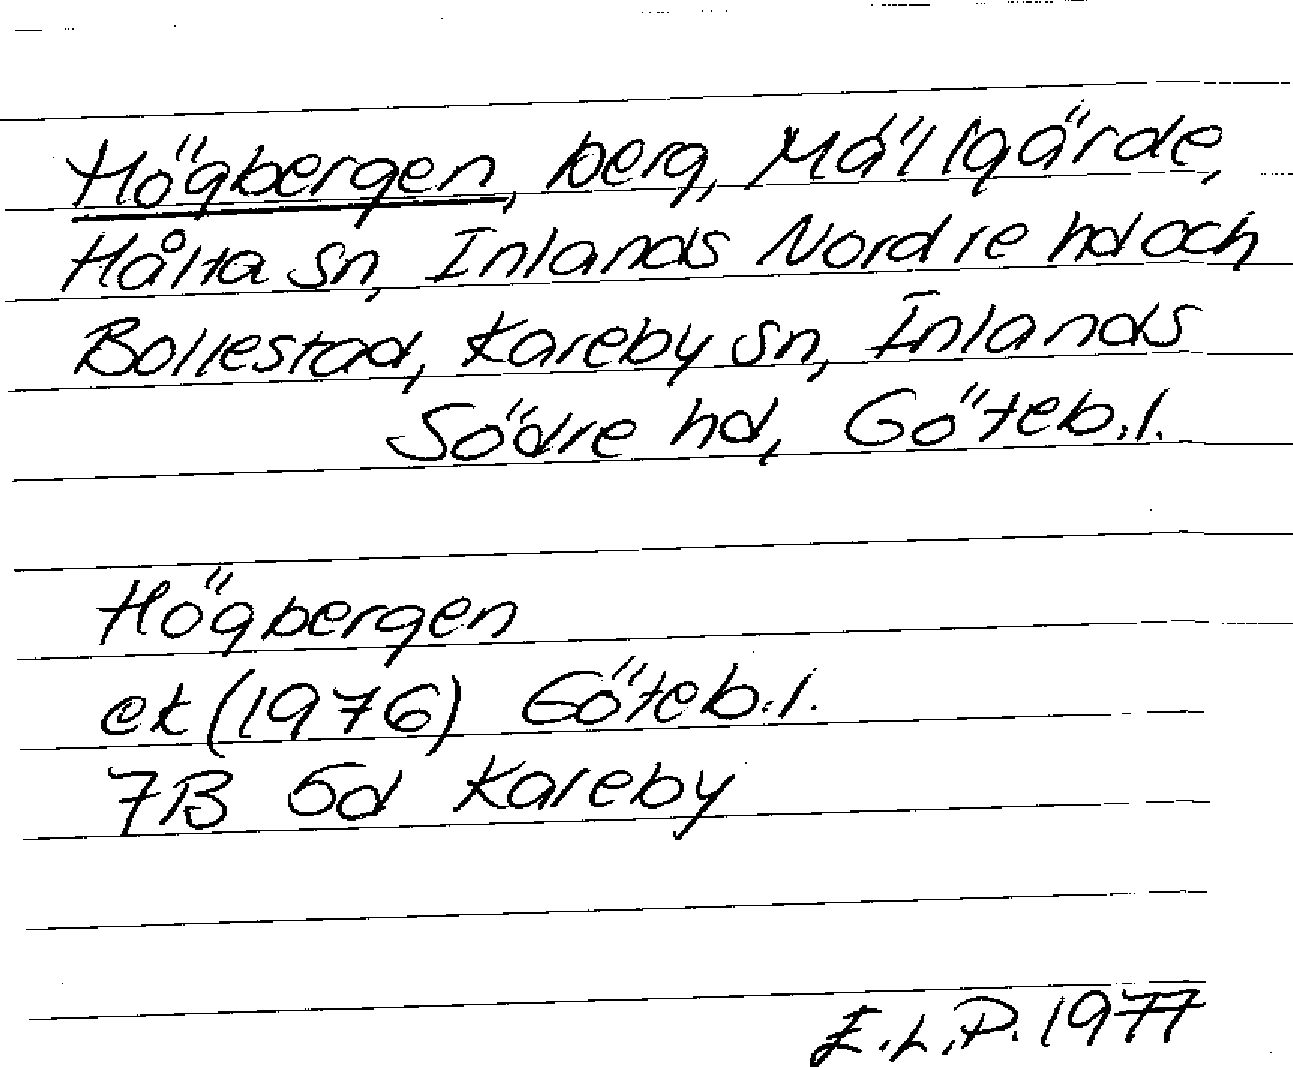 Högbergen, berg, Mällgärde,
Hålta sn, Inlands Nordre hd och
Bollestad, Kareby sn, Inlands
Södre hd, Göteb.l.
Högbergen
ek (1976) Göteb.l.
7B 5d Kareby
E.L.P. 1977